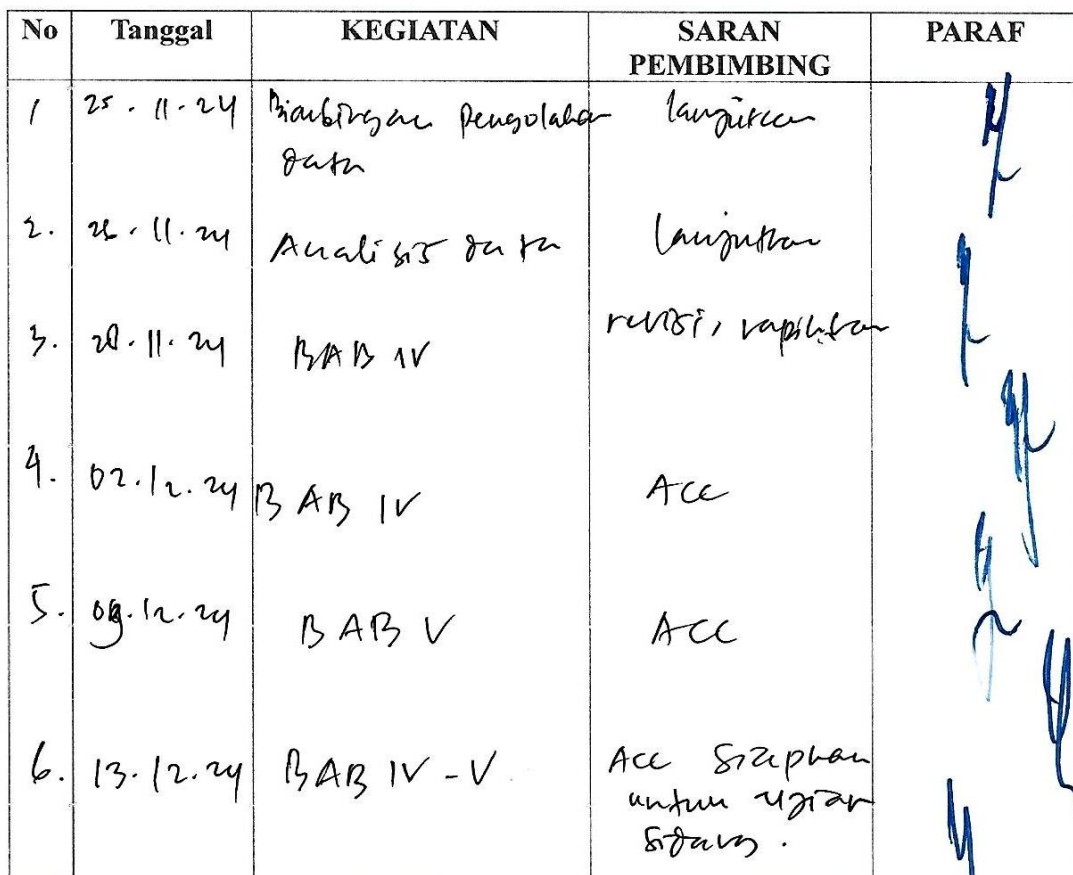 No Tanggal KEGIATAN SARAN PEMBIMBING PARAF
1 25.11.24 Bimbingan Pengolahan data lanjutkan
2. 26.11.24 Analisis data lanjutkan
3. 28.11.24 BAB IV revisi, rapihkan
4. 02.12.24 BAB IV Acc
5. 09.12.24 BAB V ACC
6. 13.12.24 BAB IV - V Acc Siapkan
untuk ujian
Sidang.